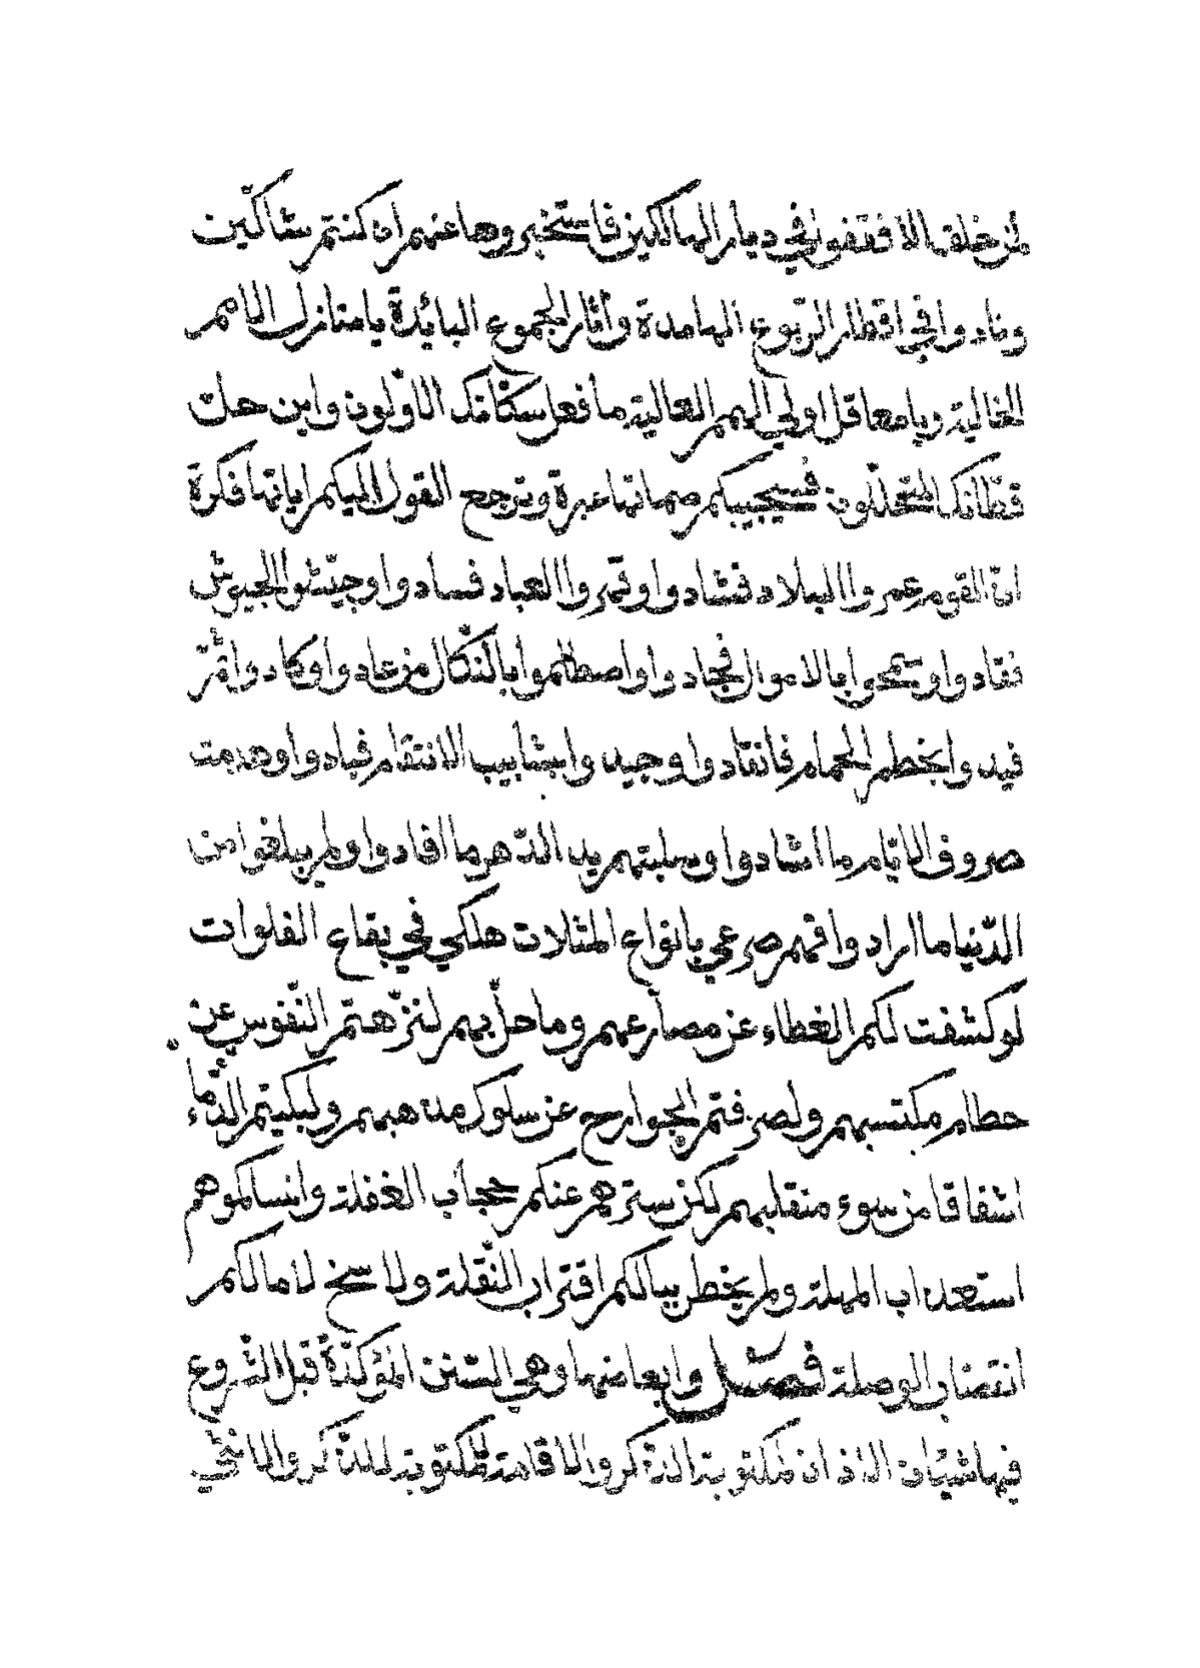 لمن خلقها الا فقفوا في ديار الهالكين فاستخبروها عنهم ان كنتم شاكّين
ونادوا في اقطار الربوع الهامدة واثار الجموع البائدة يا منازل الامم
الخالية ويا معاقل اولي الهمم العالية ما فعل سكّانك الاوّلون واين حلّ
قطّانك المتخلّفون فسيجيبكم صماتها عبرة وترجع القول اليكم اياتها فكرة
انّ القوم عمروا البلاد فشادوا وتمروا العباد فسادوا وجيّشوا الجيوش
فقادوا وسمحوا بالاموال فجادوا واصطلموا بالنكال من عادوا وكادوا ثمّ
قيدوا بخطم الحمام فانقادوا وجيدوا بشابيب الانتقام فبادوا وهدمت
صروف الايّام ما اشادوا وسلبتهم يد الدّهر ما افادوا ولم يبلغوا من
الدّنيا ما ارادوا فهم صرعي بانواع المثلات هلكي في بقاع الفلوات
لو كشفت لكم الغطاء عن مصارعهم وما حلّ بهم لنزّهتم النّفوس عن
حطام مكتسبهم ولصرفتم الجوارح عن سلوك مذهبهم ولبكيتم الدّماء
اشفاقا من سوء منقلبهم لكن سترهم عنكم حجاب الغفلة وانساكموهم
استعذاب المهلة ولم يخطر ببالكم اقتراب النّقلة ولا سخ لامالكم
انتضاب الوصلة فصل وابعاضها وهي السّنن المؤكّدة قبل الشّروع
فيها شيئان الاذان لمكتوبة الذكر والاقامة لمكتوبة للذّكر والانثي